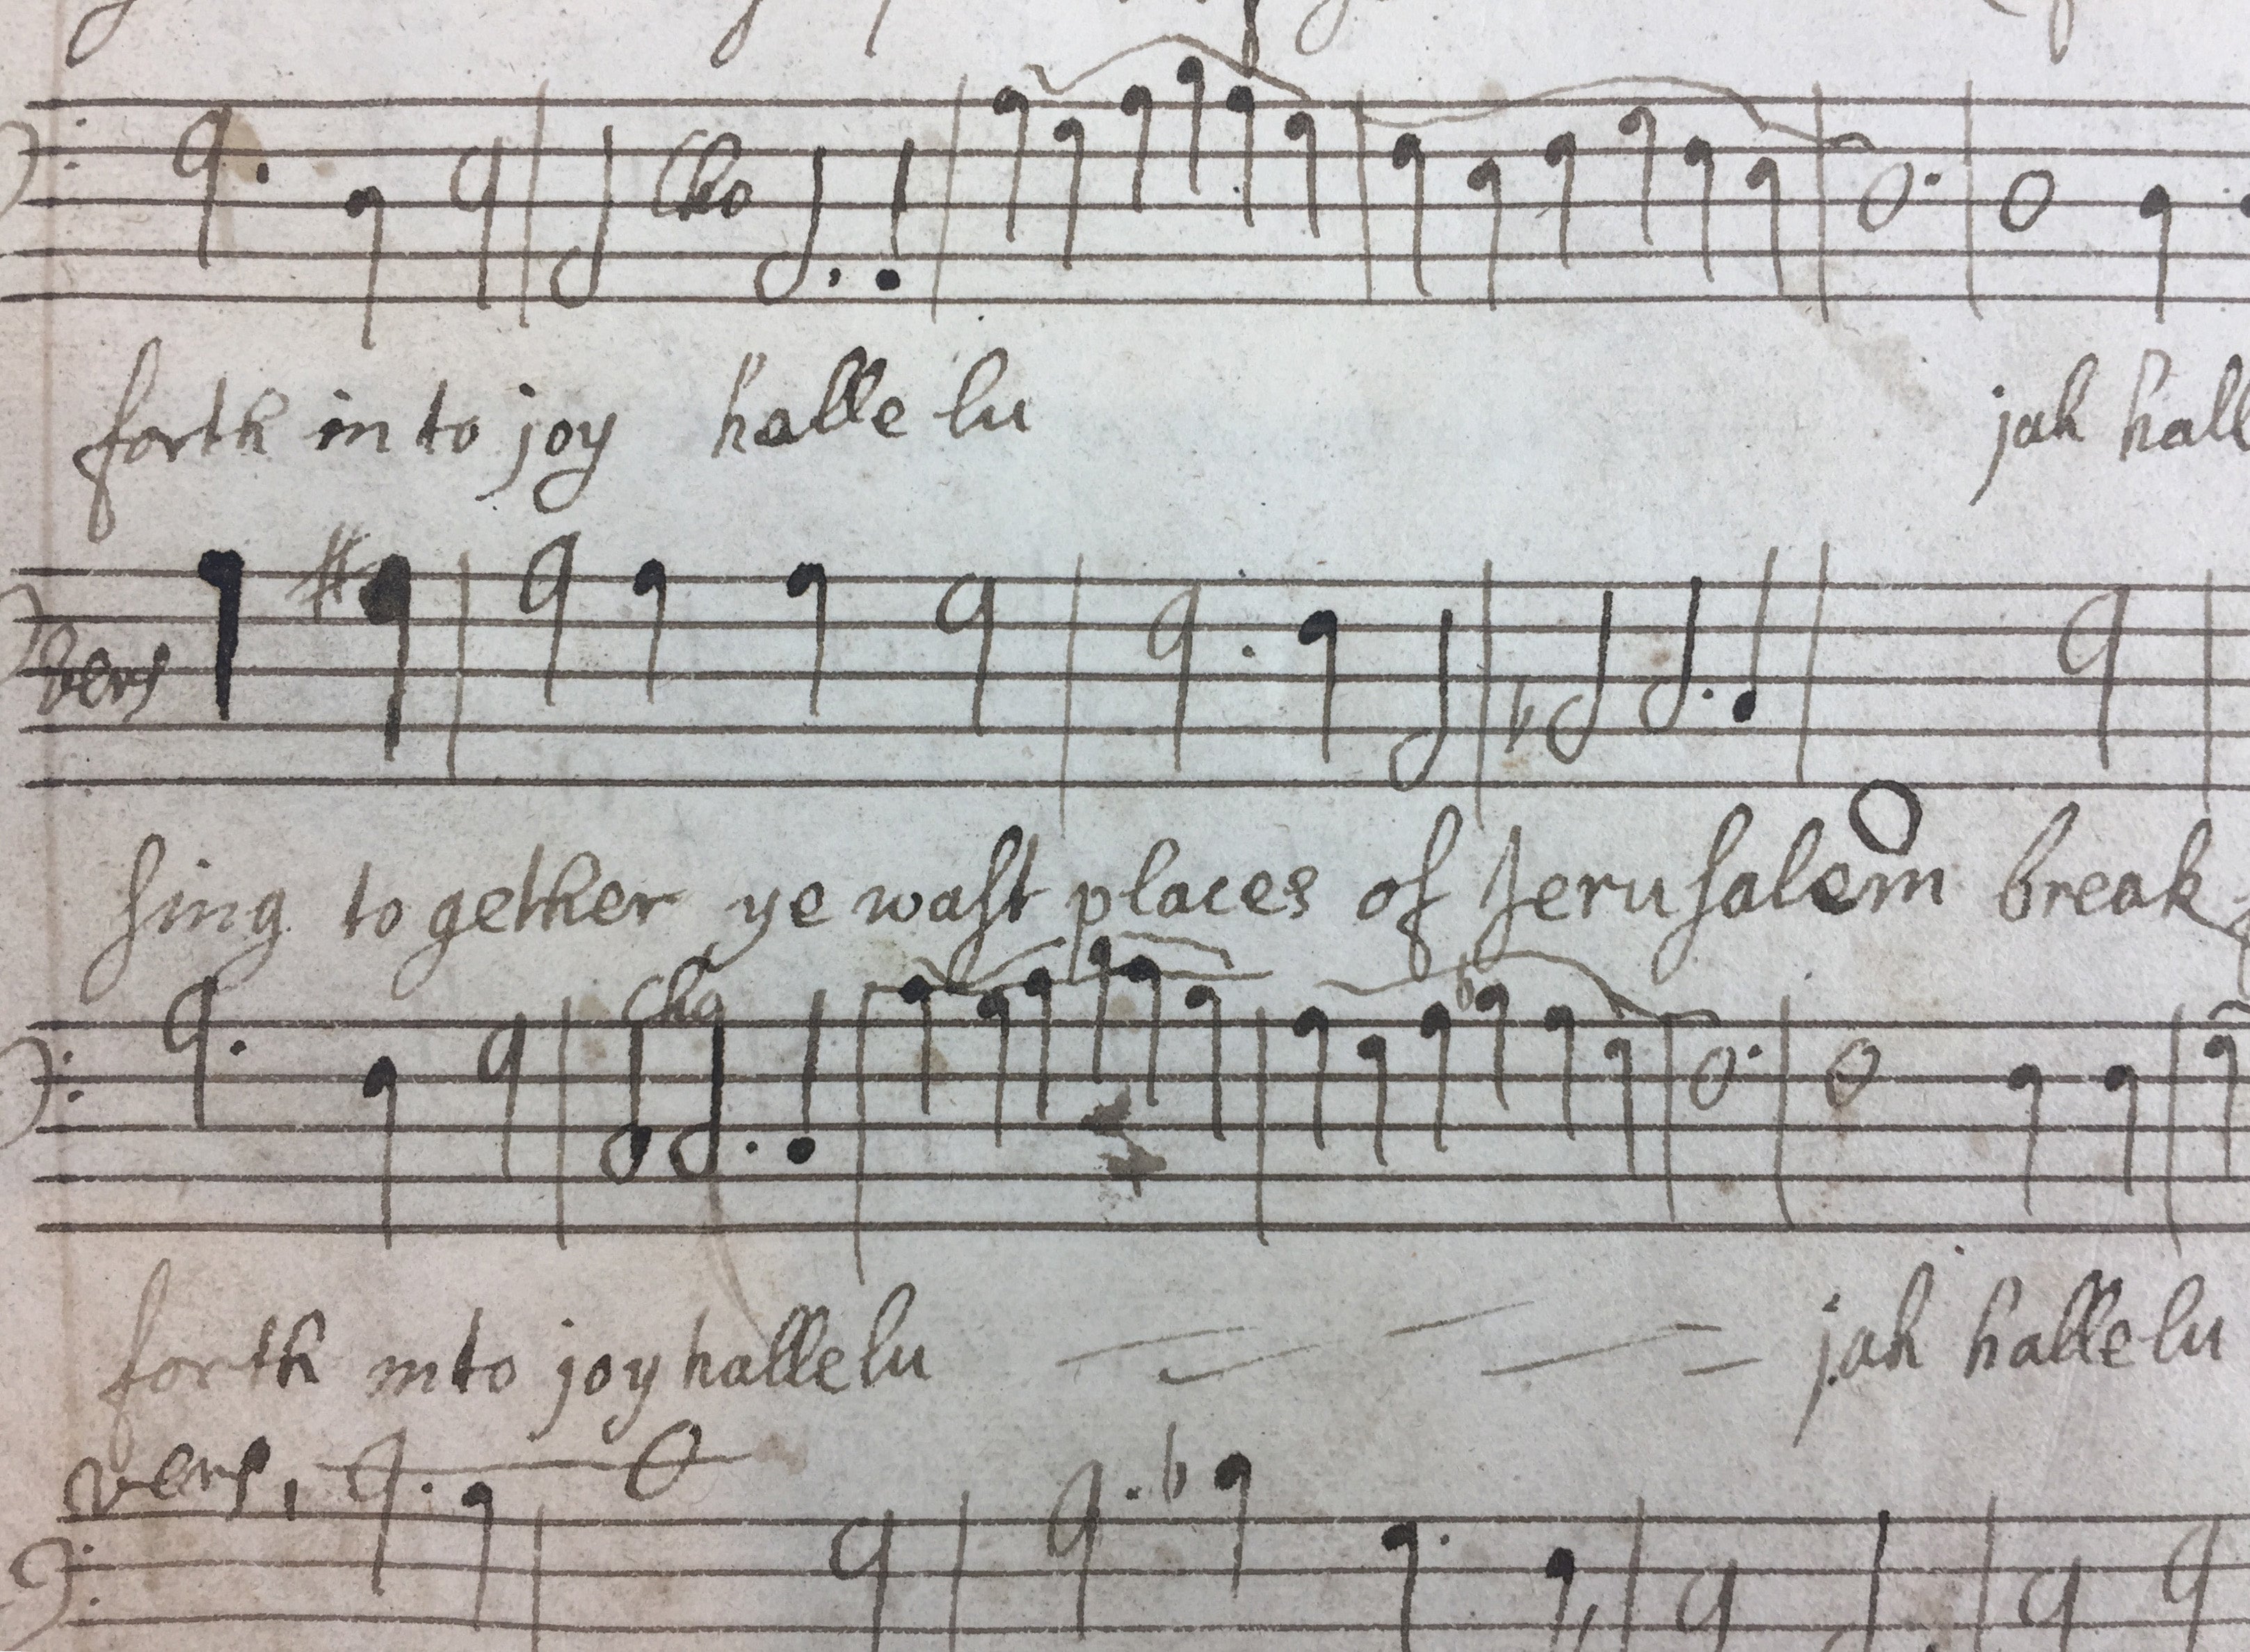 Cho
forth in to joy halle lu jah hall
vers
sing to gether ye wast places of Jerusalem break
Cho
forth into joy hallelu jah hallelu
vers,